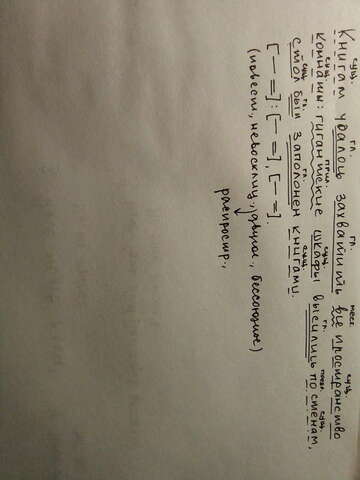 сущ. гл. гл. мест. сущ.
Книгам удалось захватить все пространство
сущ. прил. сущ. гл. предл. сущ.
комнаты: гигантские шкафы высились по стенам,
сущ. гл. сущ.
стол был заполонен книгами.
[— =]: [— =], [— =].
(повест., невосклиц., двусос., бессоюзное)
распростр.,